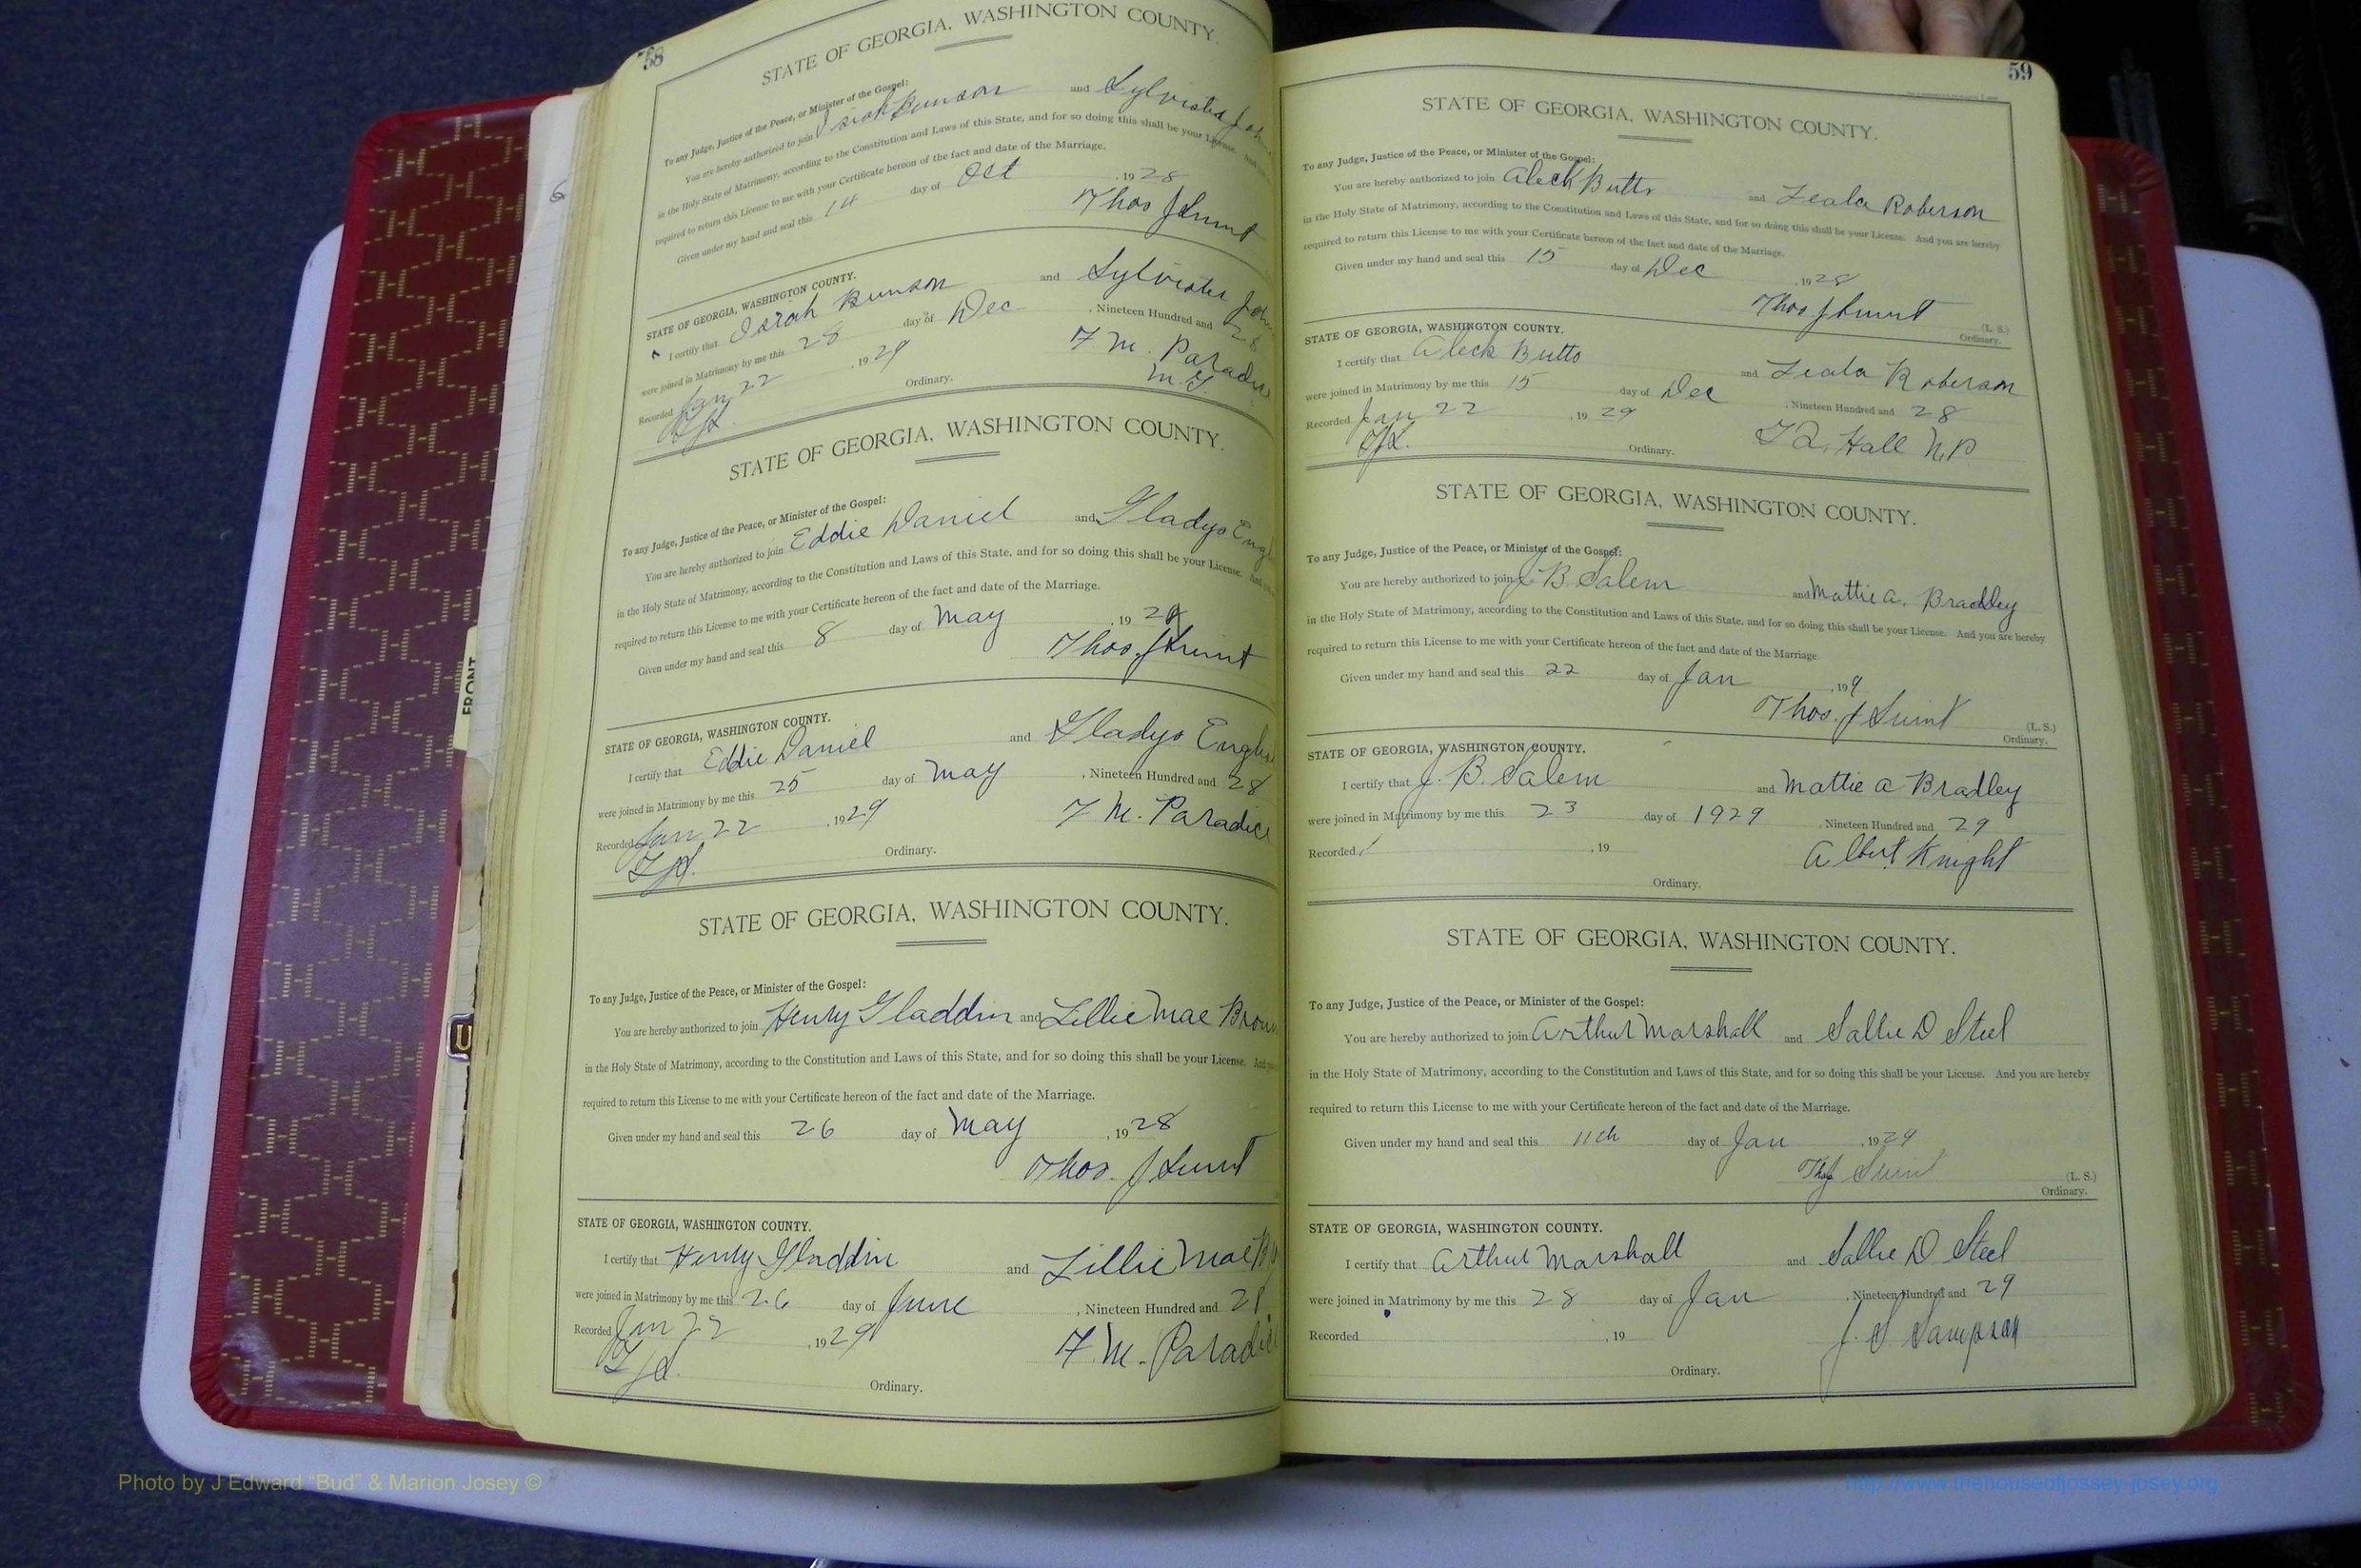 58
STATE OF GEORGIA, WASHINGTON COUNTY.
To any Judge, Justice of the Peace, or Minister of the Gospel:
You are hereby authorized to join Isiah Bunson and Sylvister
in the Holy State of Matrimony, according to the Constitution and Laws of this State, and for so doing this shall be your License.
required to return this License to me with your Certificate hereon of the fact and date of the Marriage.
Given under my hand and seal this 14 day of Oct , 1928
Thos J Swint
STATE OF GEORGIA, WASHINGTON COUNTY.
I certify that Israh Bunson and Sylvister
were joined in Matrimony by me this 28 day of Dec , Nineteen Hundred and 28
Recorded Jan 22 , 1929 F. M. Paradice
Ordinary.
STATE OF GEORGIA, WASHINGTON COUNTY.
To any Judge, Justice of the Peace, or Minister of the Gospel:
You are hereby authorized to join Eddie Daniel and Gladys
in the Holy State of Matrimony, according to the Constitution and Laws of this State, and for so doing this shall be your License.
required to return this License to me with your Certificate hereon of the fact and date of the Marriage.
Given under my hand and seal this 8 day of May , 1928
Thos. J Swint
STATE OF GEORGIA, WASHINGTON COUNTY.
I certify that Eddie Daniel and Gladys
were joined in Matrimony by me this 25 day of May , Nineteen Hundred and 28
Recorded Jan 22 , 1929 F M. Paradice
TJS. Ordinary.
STATE OF GEORGIA, WASHINGTON COUNTY.
To any Judge, Justice of the Peace, or Minister of the Gospel:
You are hereby authorized to join Henry Gladdin and Lillie Mae Brown
in the Holy State of Matrimony, according to the Constitution and Laws of this State, and for so doing this shall be your License.
required to return this License to me with your Certificate hereon of the fact and date of the Marriage.
Given under my hand and seal this 26 day of May , 1928
Thos. J Swint
STATE OF GEORGIA, WASHINGTON COUNTY.
I certify that Henry Gladdin and Lillie Mae
were joined in Matrimony by me this 26 day of June , Nineteen Hundred and 28
Recorded Jan 22 , 1929 F. M. Paradice
TJS. Ordinary.
59
STATE OF GEORGIA, WASHINGTON COUNTY.
To any Judge, Justice of the Peace, or Minister of the Gospel:
You are hereby authorized to join Aleck Butts and Leala Roberson
in the Holy State of Matrimony, according to the Constitution and Laws of this State, and for so doing this shall be your License. And you are hereby
required to return this License to me with your Certificate hereon of the fact and date of the Marriage.
Given under my hand and seal this 15 day of Dec , 1928
Thos J Swint (L. S.)
Ordinary.
STATE OF GEORGIA, WASHINGTON COUNTY.
I certify that Aleck Butts and Leala Roberson
were joined in Matrimony by me this 15 day of Dec , Nineteen Hundred and 28
Recorded Jan 22 , 1929
TJS. Ordinary. Hall N.P.
STATE OF GEORGIA, WASHINGTON COUNTY.
To any Judge, Justice of the Peace, or Minister of the Gospel:
You are hereby authorized to join J B Salem and Mattie A. Bradley
in the Holy State of Matrimony, according to the Constitution and Laws of this State, and for so doing this shall be your License. And you are hereby
required to return this License to me with your Certificate hereon of the fact and date of the Marriage.
Given under my hand and seal this 22 day of Jan , 199
Thos. J Swint (L. S.)
Ordinary.
STATE OF GEORGIA, WASHINGTON COUNTY.
I certify that J. B. Salem and Mattie A Bradley
were joined in Matrimony by me this 23 day of 1929 , Nineteen Hundred and 29
Recorded , 19 Albert Knight
Ordinary.
STATE OF GEORGIA, WASHINGTON COUNTY.
To any Judge, Justice of the Peace, or Minister of the Gospel:
You are hereby authorized to join Arthur Marshall and Sallie D Steel
in the Holy State of Matrimony, according to the Constitution and Laws of this State, and for so doing this shall be your License. And you are hereby
required to return this License to me with your Certificate hereon of the fact and date of the Marriage.
Given under my hand and seal this 11th day of Jan , 1929
Thos J Swint (L. S.)
Ordinary.
STATE OF GEORGIA, WASHINGTON COUNTY.
I certify that Arthur Marshall and Sallie D Steel
were joined in Matrimony by me this 28 day of Jan , Nineteen Hundred and 29
Recorded , 19 J. S. Sampson
Ordinary.
FRONT
Photo by J Edward “Bud” & Marion Josey ©
http://www.thehouseofjossey-josey.org